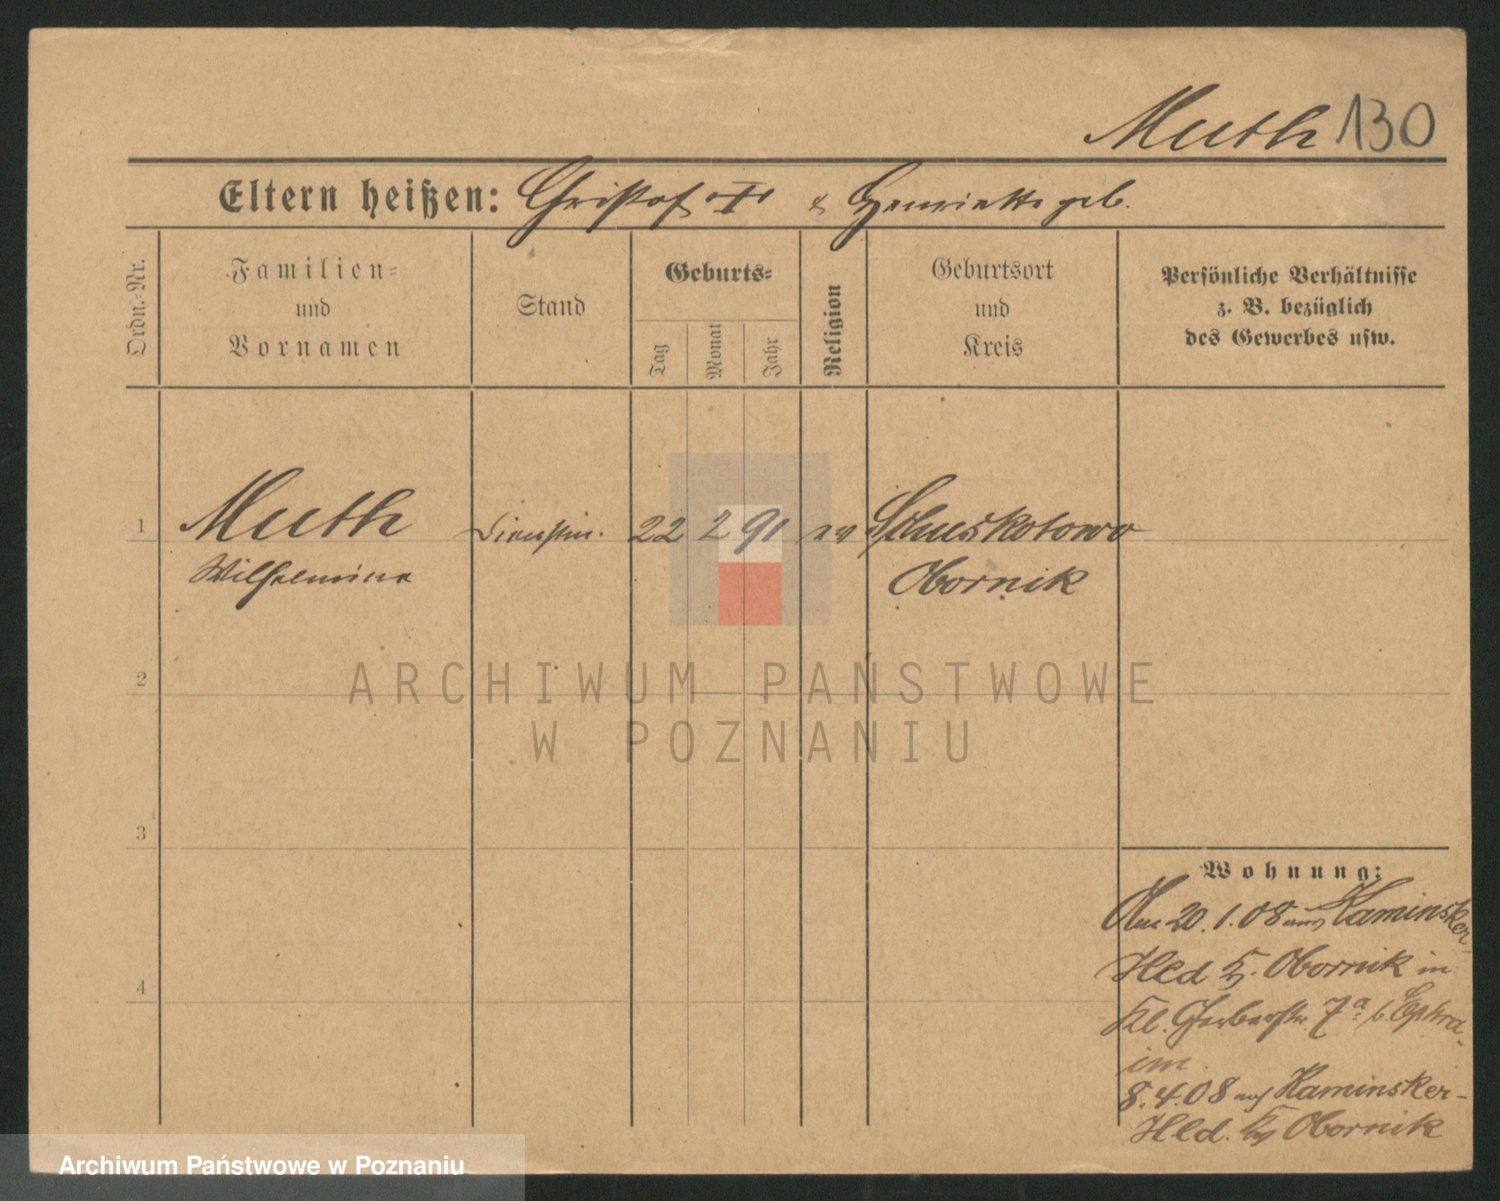 Muth 130
Eltern heißen: Christof & Henriette geb.
Ordn.-Nr.
Familien-
und
Vornamen
Stand
Geburts-
Tag
Monat
Jahr
Religion
Geburtsort
und
Kreis
Persönliche Verhältnisse
z. B. bezüglich
des Gewerbes usw.
1 Muth Dienstm. 22 2 91 ev Schuskotowo
Wilhelmine Obornik
2
3
4
Wohnung:
Am 20.1.08 aus Kaminsker-
Hld Kr. Obornik in
Kl. Gerberstr. 7a b. Ephra-
im.
8.4.08 nach Kaminsker-
Hld. Kr Obornik
ARCHIWUM PAŃSTWOWE
W POZNANIU
Archiwum Państwowe w Poznaniu